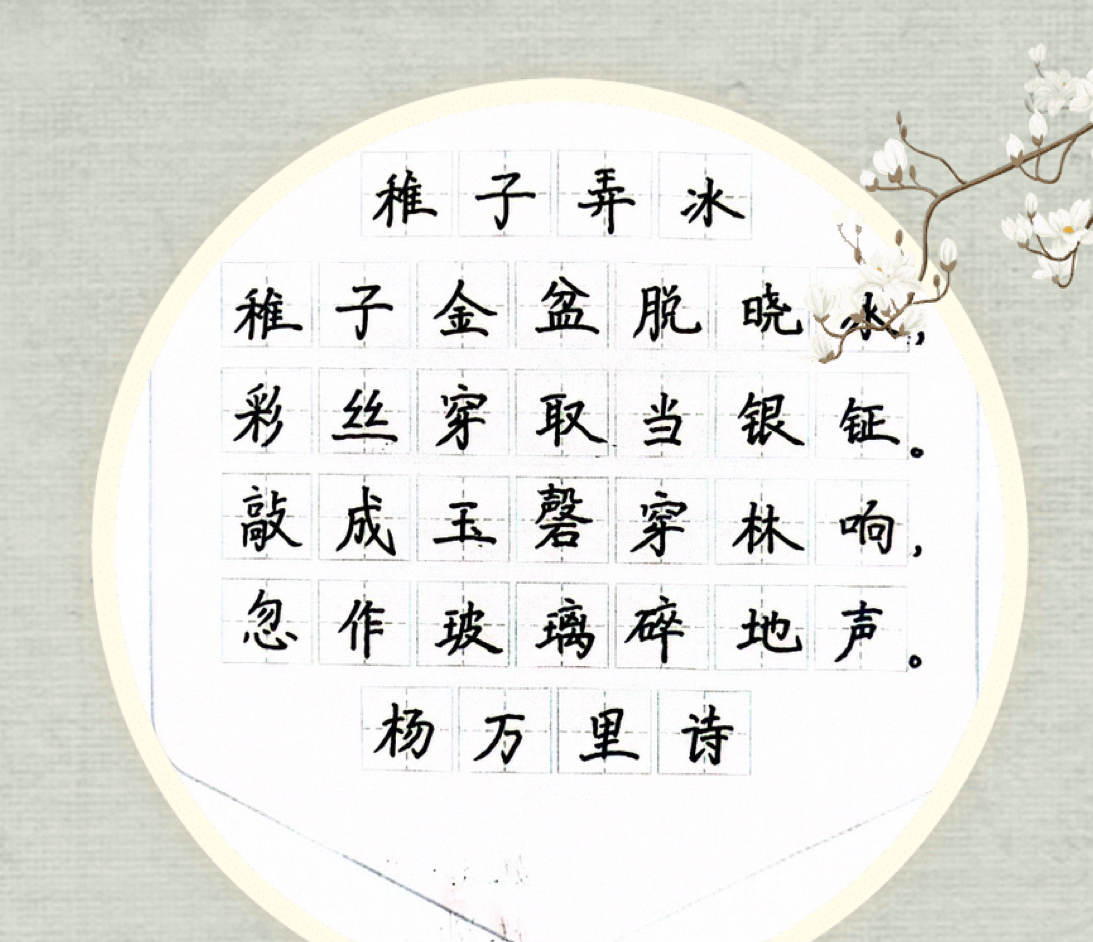 稚子弄冰
稚子金盆脱晓冰，
彩丝穿取当银钲。
敲成玉磬穿林响，
忽作玻璃碎地声。
杨万里诗